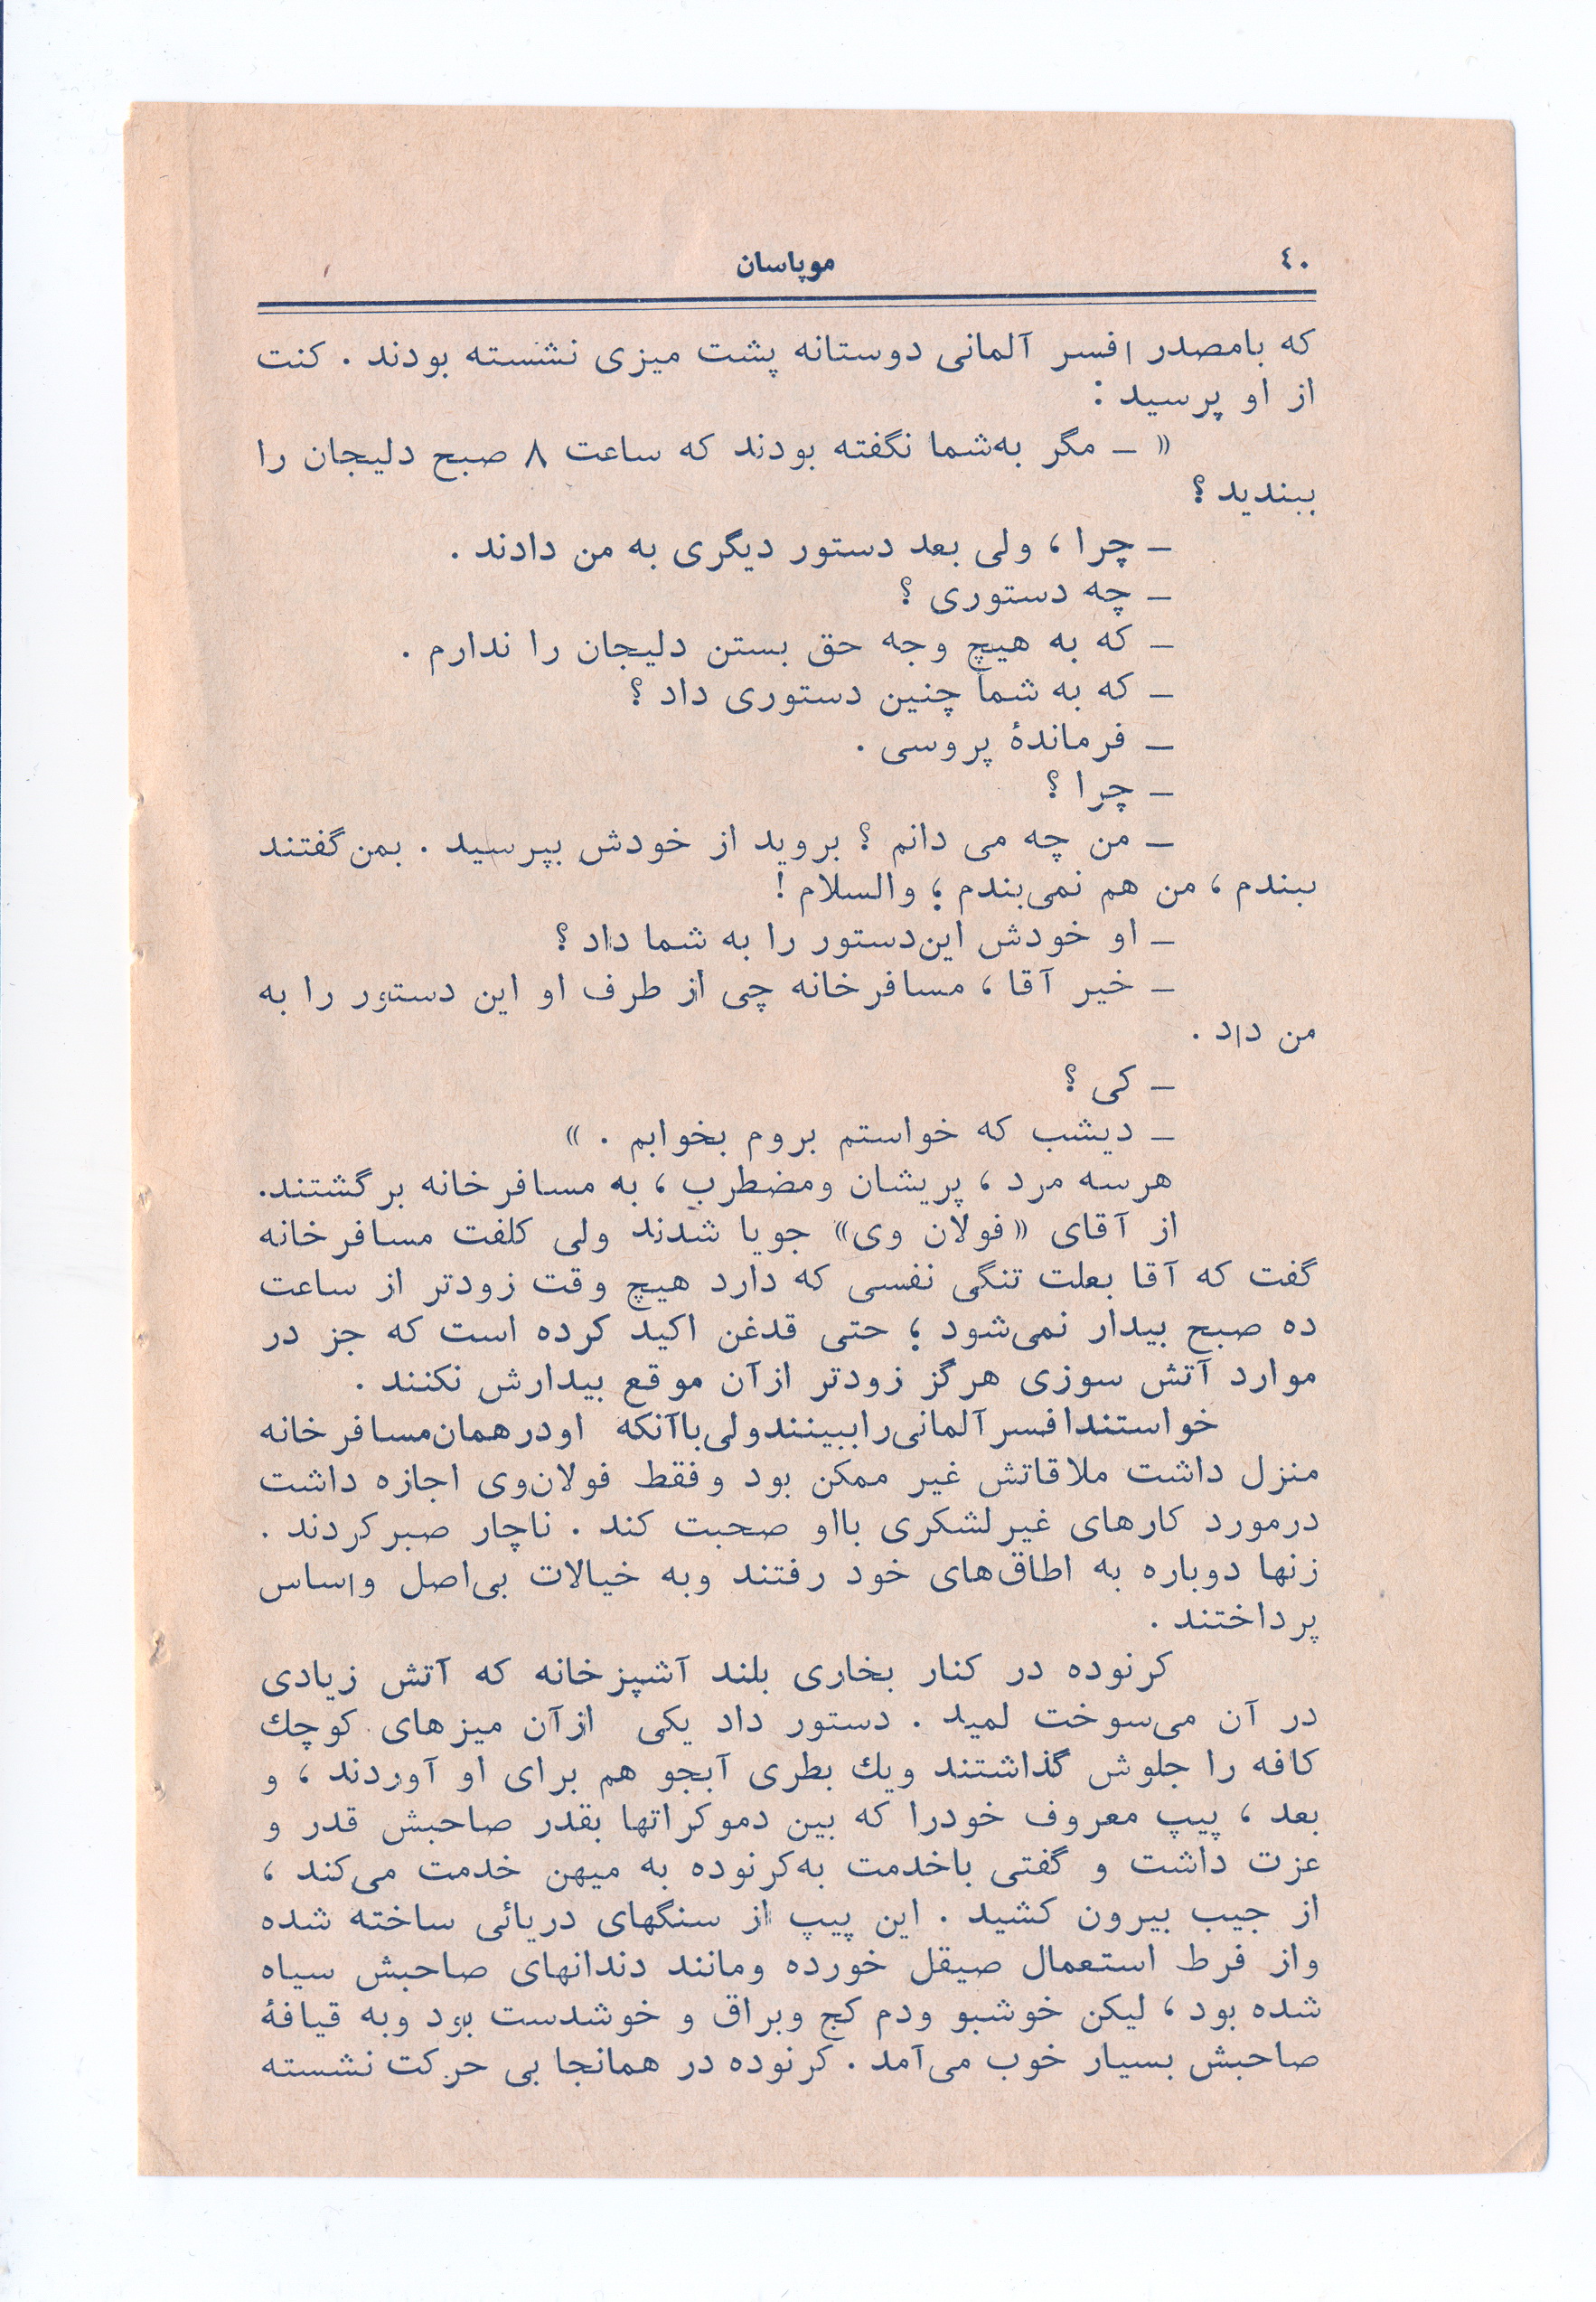 ٤٠
موپاسان
که بامصدر افسر آلمانی دوستانه پشت میزی نشسته بودند . کنت
از او پرسید :
« ـ مگر به‌شما نگفته بودند که ساعت ۸ صبح دلیجان را
ببندید ؟
ـ چرا ، ولی بعد دستور دیگری به من دادند .
ـ چه دستوری ؟
ـ که به هیچ وجه حق بستن دلیجان را ندارم .
ـ که به شما چنین دستوری داد ؟
ـ فرماندهٔ پروسی .
ـ چرا ؟
ـ من چه می دانم ؟ بروید از خودش بپرسید . بمن‌گفتند
نبندم ، من هم نمی‌بندم ؛ والسلام !
ـ او خودش این‌دستور را به شما داد ؟
ـ خیر آقا ، مسافرخانه چی از طرف او این دستور را به
من داد .
ـ کی ؟
ـ دیشب که خواستم بروم بخوابم . »
هرسه مرد ، پریشان ومضطرب ، به مسافرخانه برگشتند.
از آقای «فولان وی» جویا شدند ولی کلفت مسافرخانه
گفت که آقا بعلت تنگی نفسی که دارد هیچ وقت زودتر از ساعت
ده صبح بیدار نمی‌شود ؛ حتی قدغن اکید کرده است که جز در
موارد آتش سوزی هرگز زودتر ازآن موقع بیدارش نکنند .
خواستندافسرآلمانی‌راببینندولی‌باآنکه اودرهمان‌مسافرخانه
منزل داشت ملاقاتش غیر ممکن بود وفقط فولان‌وی اجازه داشت
درمورد کارهای غیرلشکری بااو صحبت کند . ناچار صبرکردند .
زنها دوباره به اطاق‌های خود رفتند وبه خیالات بی‌اصل واساس
پرداختند .
کرنوده در کنار بخاری بلند آشپزخانه که آتش زیادی
در آن می‌سوخت لمید . دستور داد یکی ازآن میزهای کوچك
کافه را جلوش گذاشتند ویك بطری آبجو هم برای او آوردند ، و
بعد ، پیپ معروف خودرا که بین دموکراتها بقدر صاحبش قدر و
عزت داشت و گفتی باخدمت به‌کرنوده به میهن خدمت می‌کند ،
از جیب بیرون کشید . این پیپ از سنگهای دریائی ساخته شده
واز فرط استعمال صیقل خورده ومانند دندانهای صاحبش سیاه
شده بود ، لیکن خوشبو ودم کج وبراق و خوشدست بود وبه قیافهٔ
صاحبش بسیار خوب می‌آمد . کرنوده در همانجا بی حرکت نشسته